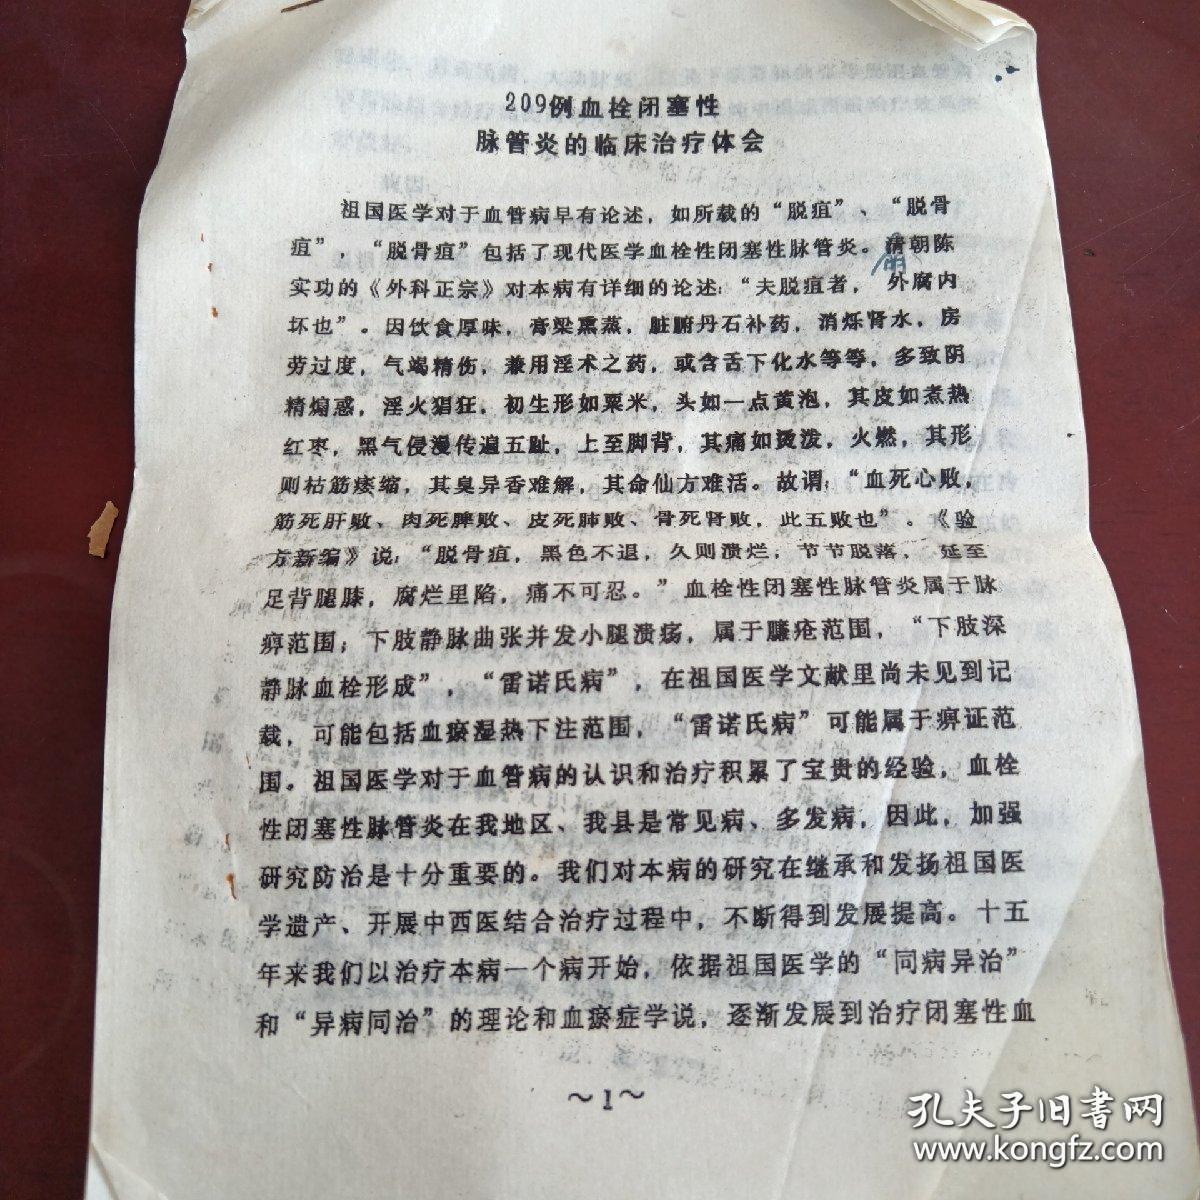 209例血栓闭塞性
脉管炎的临床治疗体会
祖国医学对于血管病早有论述，如所载的“脱疽”、“脱骨
疽”，“脱骨疽”包括了现代医学血栓性闭塞性脉管炎。清朝陈
明
实功的《外科正宗》对本病有详细的论述：“夫脱疽者，外腐内
坏也”。因饮食厚味，膏粱熏蒸，脏腑丹石补药，消烁肾水，房
劳过度，气竭精伤，兼用淫术之药，或含舌下化水等等，多致阴
精煽惑，淫火猖狂，初生形如粟米，头如一点黄泡，其皮如煮热
红枣，黑气侵漫传遍五趾，上至脚背，其痛如烫泼，火燃，其形
则枯筋痿缩，其臭异香难解，其命仙方难活。故谓：“血死心败，
筋死肝败、肉死脾败、皮死肺败、骨死肾败，此五败也”。《验
方新编》说：“脱骨疽，黑色不退，久则溃烂，节节脱落，延至
足背腿膝，腐烂里陷，痛不可忍。”血栓性闭塞性脉管炎属于脉
痹范围；下肢静脉曲张并发小腿溃疡，属于臁疮范围，“下肢深
静脉血栓形成”，“雷诺氏病”，在祖国医学文献里尚未见到记
载，可能包括血瘀湿热下注范围，“雷诺氏病”可能属于痹证范
围。祖国医学对于血管病的认识和治疗积累了宝贵的经验，血栓
性闭塞性脉管炎在我地区、我县是常见病、多发病，因此，加强
研究防治是十分重要的。我们对本病的研究在继承和发扬祖国医
学遗产、开展中西医结合治疗过程中，不断得到发展提高。十五
年来我们以治疗本病一个病开始，依据祖国医学的“同病异治”
和“异病同治”的理论和血瘀症学说，逐渐发展到治疗闭塞性血
～1～
孔夫子旧书网
www.kongfz.com